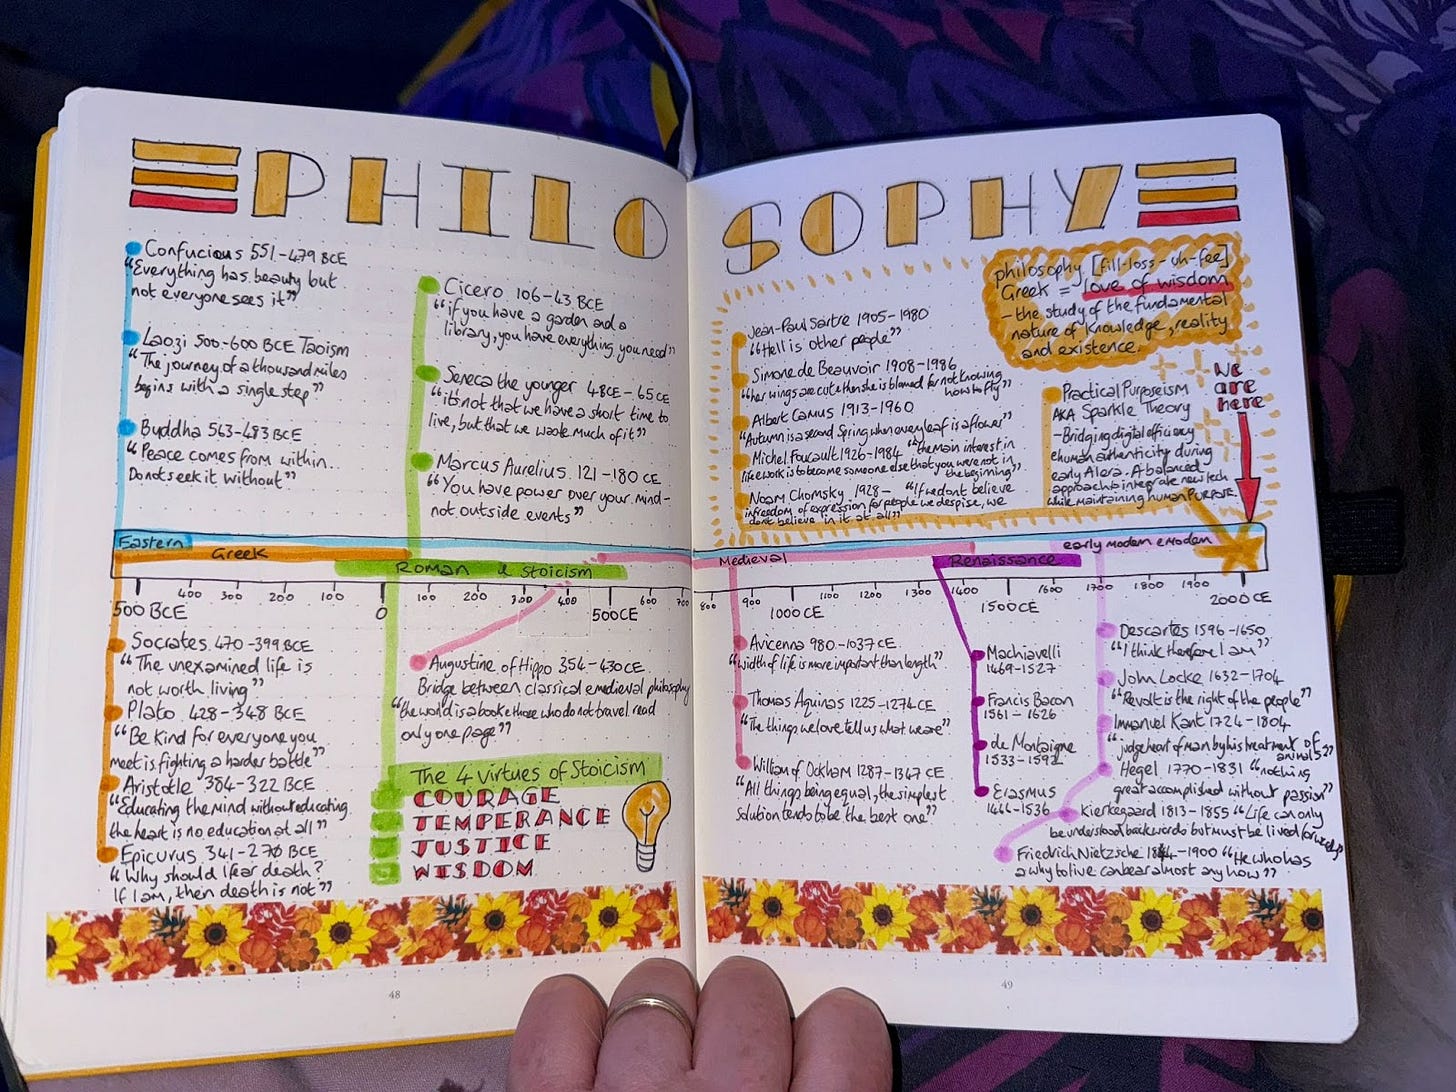 PHILOSOPHY
Confucious 551-479 BCE
"Everything has beauty but
not everyone sees it"
Laozi 500-600 BCE Taoism
"The journey of a thousand miles
begins with a single step"
Buddha 563-483 BCE
"Peace comes from within..
Do not seek it without"
Cicero 106-43 BCE
"if you have a garden and a
library, you have everything you need"
Seneca the younger 4BCE-65CE
"it's not that we have a short time to
live, but that we waste much of it"
Marcus Aurelius 121-180 CE
"You have power over your mind-
not outside events"
Jean-Paul Sartre 1905-1980
"Hell is other people"
Simone de Beauvoir 1908-1986
"her wings are cut & then she is blamed for not knowing
how to fly"
Albert Camus 1913-1960
"Autumn is a second Spring when every leaf is a flower"
Michel Foucault 1926-1984 "the main interest in
life & work is to become someone else that you were not in
the beginning"
Noam Chomsky 1928- "If we dont believe
in freedom of expression for people we despise, we
dont believe in it at all"
philosophy [fill-loss-uh-fee]
Greek = love of wisdom
-the study of the fundamental
nature of knowledge, reality
and existence.
Practical Purposeism
AKA Sparkle Theory
-Bridging digital efficiency
& human authenticity during
early AI era. A balanced
approach to integrate new tech
while maintaining human PURPOSE.
We
are
here
Eastern
Greek
Roman & Stoicism
Medieval
Renaissance
early modern & modern
500 BCE 400 300 200 100 0 100 200 300 400 500CE 600 700 800 900 1000CE 1100 1200 1300 1400 1500CE 1600 1700 1800 1900 2000CE
Socrates 470-399 BCE
"The unexamined life is
not worth living"
Plato 428-348 BCE
"Be kind for everyone you
meet is fighting a harder battle"
Aristotle 384-322 BCE
"Educating the mind without educating
the heart is no education at all"
Epicurus 341-270 BCE
"Why should I fear death?
If I am, then death is not"
Augustine of Hippo 354-430CE
Bridge between classical & medieval philosophy
"the world is a book & those who do not travel read
only one page"
The 4 Virtues of Stoicism
COURAGE
TEMPERANCE
JUSTICE
WISDOM
Avicenna 980-1037 CE
"width of life is more important than length"
Thomas Aquinas 1225-1274 CE
"The things we love tell us what we are"
William of Ockham 1287-1347 CE
"All things being equal, the simplest
solution tends to be the best one"
Machiavelli
1469-1527
Francis Bacon
1561-1626
de Montaigne
1533-1592
Erasmus
1466-1536
Descartes 1596-1650
"I think therefore I am"
John Locke 1632-1704
"Revolt is the right of the people"
Immanuel Kant 1724-1804
"judge heart of man by his treatment of
animals"
Hegel 1770-1831 "nothing
great accomplished without passion"
Kierkegaard 1813-1855 "Life can only
be understood backwards but must be lived forwards"
Friedrich Nietzsche 1844-1900 "He who has
a why to live can bear almost any how"
48
49